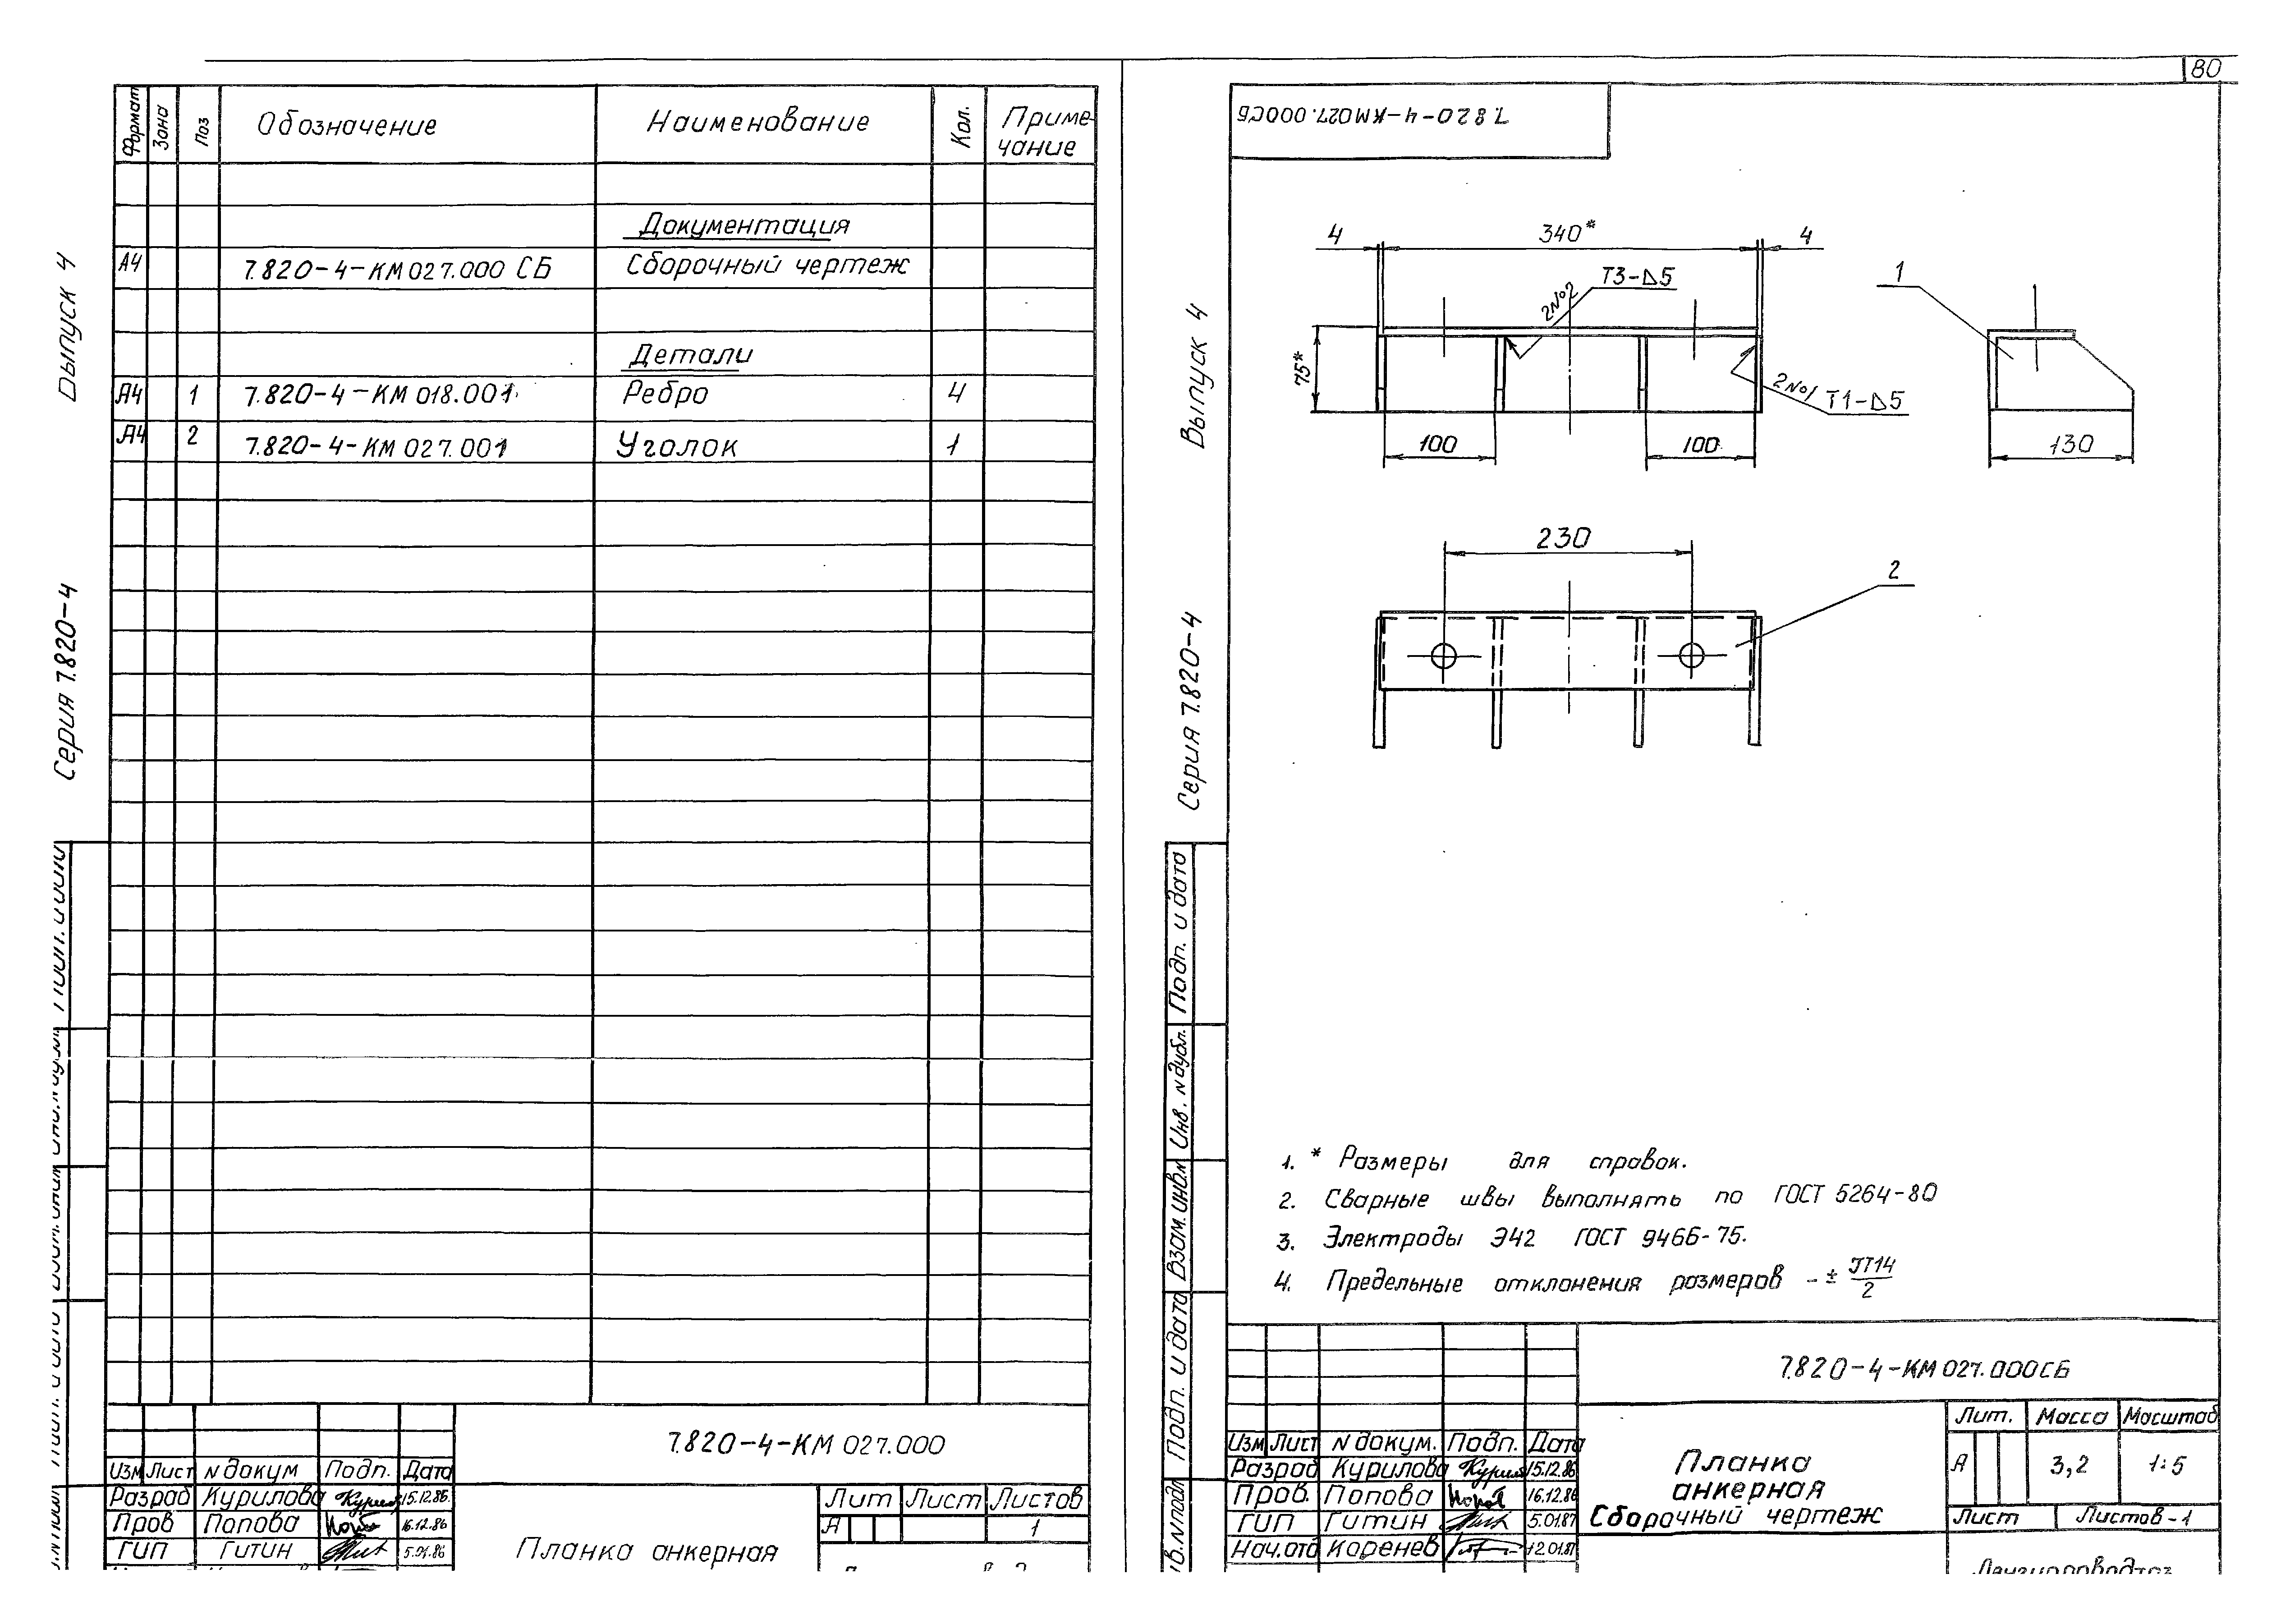 80
Формат Зона Поз Обозначение Наименование Кол. Приме-
чание
Документация
А4 7.820-4-КМ 027.000 СБ Сборочный чертеж
Детали
А4 1 7.820-4-КМ 018.001 Ребро 4
А4 2 7.820-4-КМ 027.001 Уголок 1
Выпуск 4
Серия 7.820-4
7.820-4-КМ 027.000
Изм Лист N докум Подп. Дата
Разраб Курилова 15.12.86
Пров Попова 16.12.86
ГИП Гитин 5.01.86
Планка анкерная
Лит Лист Листов
А 1
7.820-4-КМ027.000СБ
Выпуск 4
Серия 7.820-4
4 340* 4
Т3-⊿5
2№2
75*
2№1 Т1-⊿5
100 100
1
130
230
2
Подп. и дата
Инв. N дубл.
Взам. инв. N
Подп. и дата
1. * Размеры для справок.
2. Сварные швы выполнять по ГОСТ 5264-80
3. Электроды Э42 ГОСТ 9466-75.
4. Предельные отклонения размеров - ± JT14/2
7.820-4-КМ 027.000СБ
Изм Лист N докум. Подп. Дата
Разраб Курилова 15.12.86
Пров. Попова 16.12.86
ГИП Гитин 5.01.87
Нач.отд Коренев 12.01.87
Планка
анкерная
Сборочный чертеж
Лит. Масса Масштаб
А 3,2 1:5
Лист Листов-1